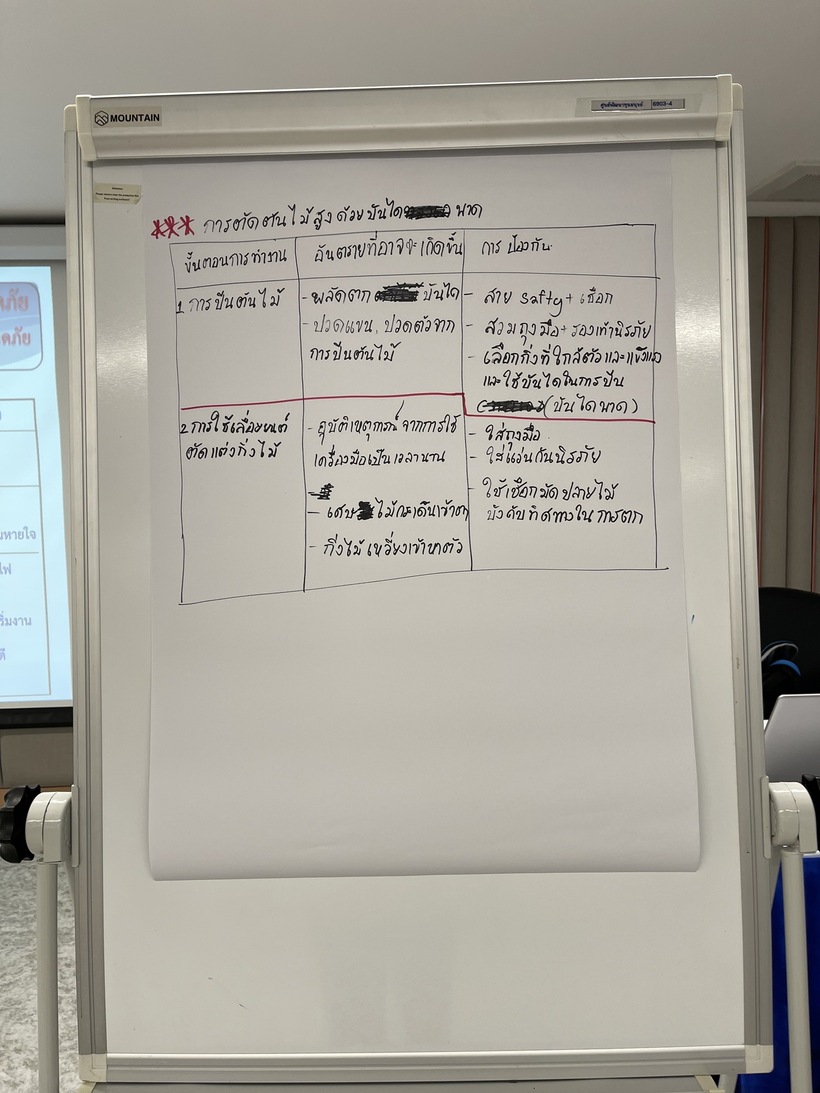 MOUNTAIN
ศูนย์พัฒนาทุนมนุษย์ 6903-4
*** การตัดต้นไม้สูงด้วยบันไดพาด
ขั้นตอนการทำงาน
อันตรายที่อาจจะเกิดขึ้น
การป้องกัน
1. การปีนต้นไม้
- พลัดตกบันได
- ปวดแขน, ปวดตัวจาก
การปีนต้นไม้
- สาย Safty + เชือก
- สวมถุงมือ + รองเท้านิรภัย
- เลือกกิ่งที่ใกล้ตัวและแข็งแรง
และใช้บันไดในการปีน
(บันไดพาด)
2. การใช้เลื่อยยนต์
ตัดแต่งกิ่งไม้
- อุบัติเหตุการณ์จากการใช้
เครื่องมือเป็นเวลานาน
- เศษไม้กระเด็นเข้าตา
- กิ่งไม้เหวี่ยงเข้าหาตัว
- ใส่ถุงมือ
- ใส่แว่นกันนิรภัย
- ใช้เชือกมัดปลายไม้
บังคับทิศทางในการตก
ดภัย
ดภัย
มหายใจ
ไฟ
ริ่มงาน
ดี